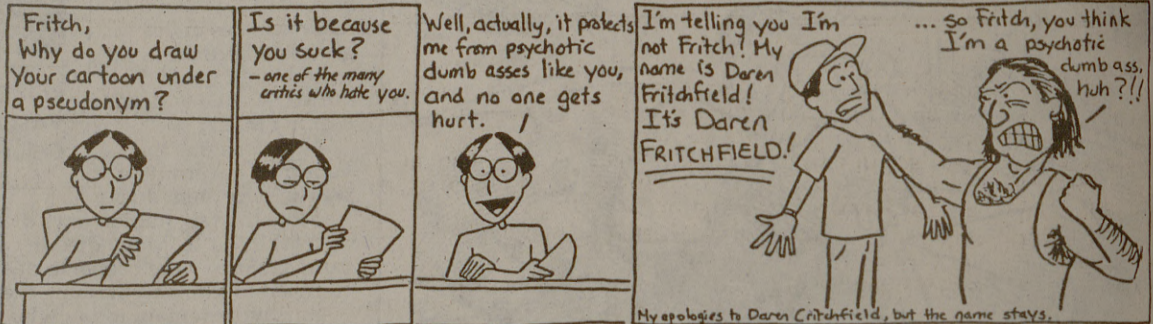 Fritch,
Why do you draw
your cartoon under
a pseudonym?
Is it because
you suck?
- one of the many
critics who hate you.
Well, actually, it protects
me from psychotic
dumb asses like you,
and no one gets
hurt.
I'm telling you I'm
not Fritch! My
name is Daren
Fritchfield!
It's Daren
FRITCHFIELD!
... so Fritch, you think
I'm a psychotic
dumb ass,
huh?!!
My apologies to Daren Critchfield, but the name stays.